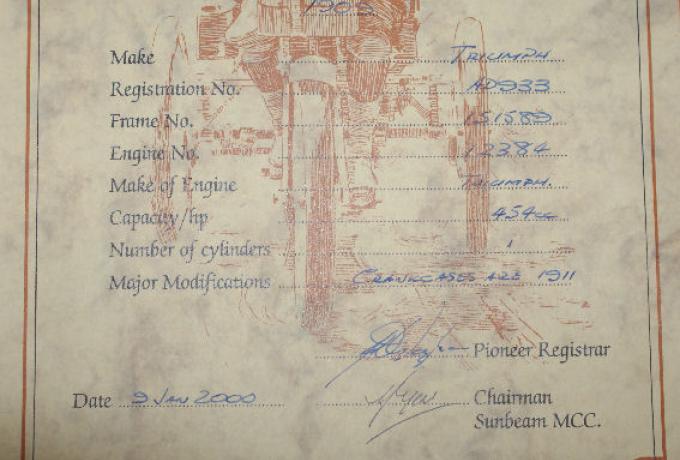 1909
Make TRIUMPH
Registration No. AD933
Frame No. 151589
Engine No. 12384
Make of Engine TRIUMPH.
Capacity/hp 454cc
Number of cylinders 1
Major Modifications CRANKCASES ARE 1911
Pioneer Registrar
Date 9 JAN 2000 Chairman
Sunbeam MCC.